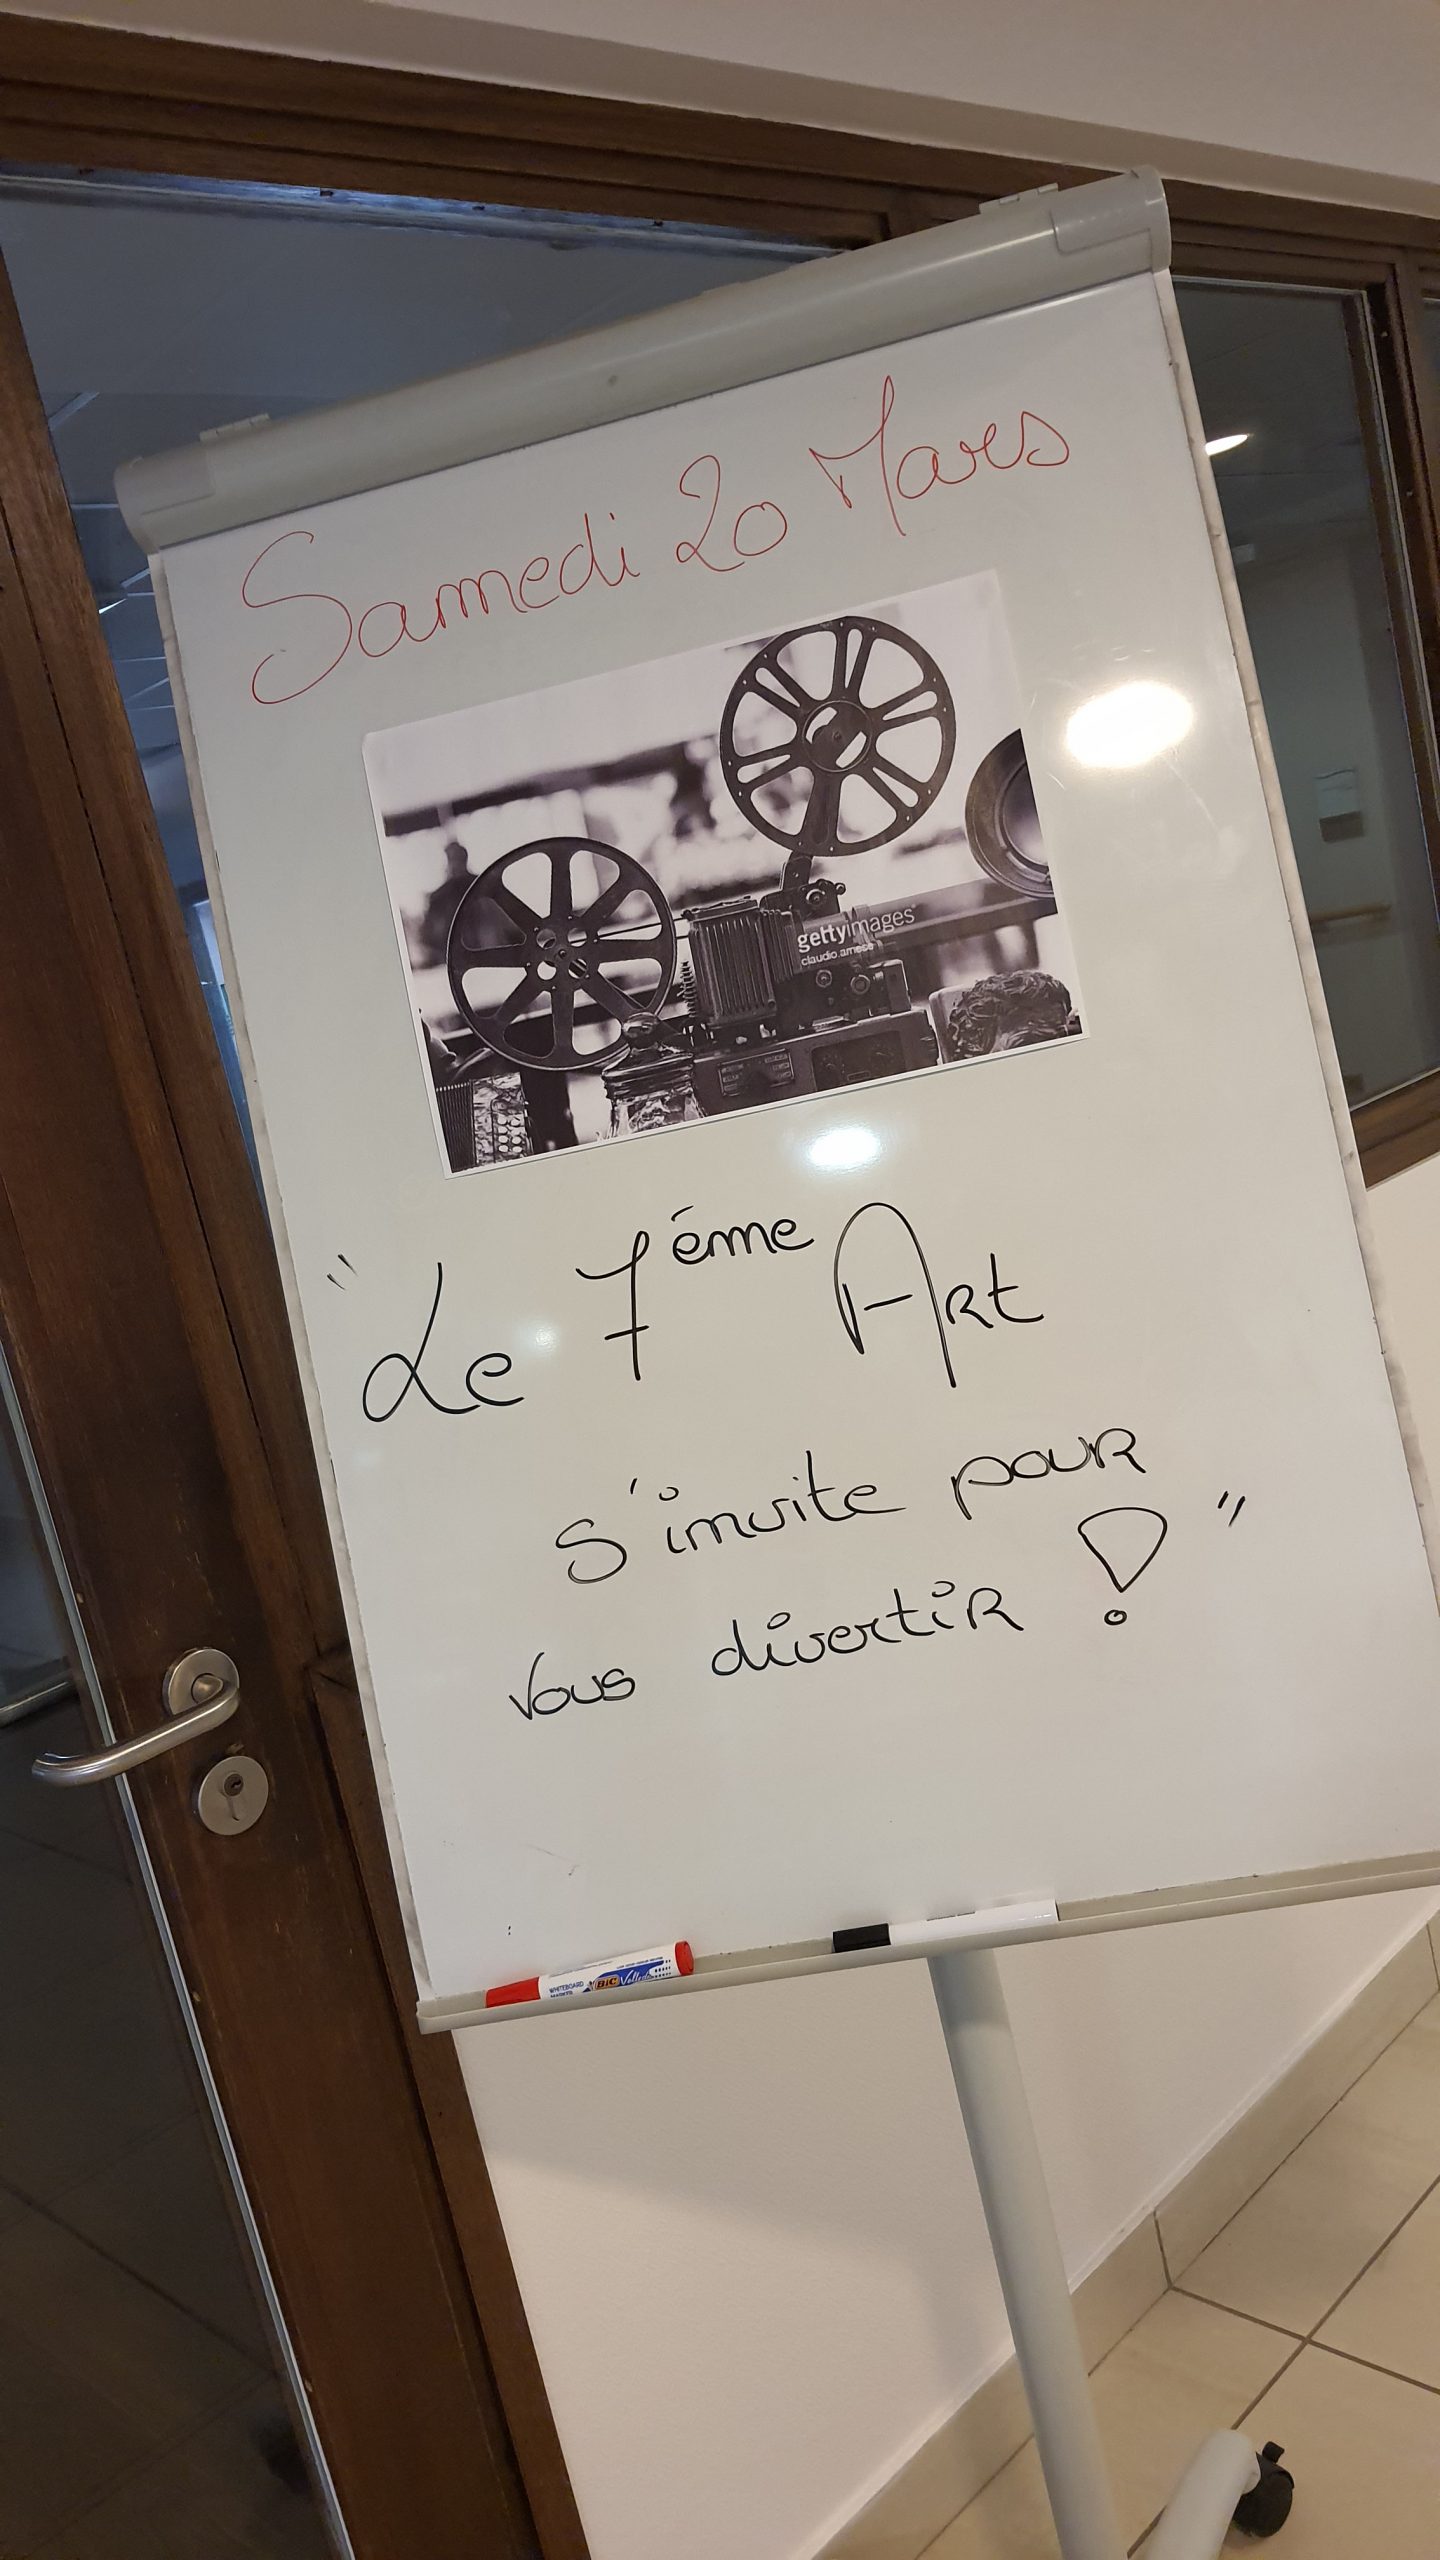 Samedi 20 Mars
gettyimages
claudio.arnese
"Le 7éme Art
s'invite pour
vous divertir ! "
WHITEBOARD
MARKER
BIC Velleda